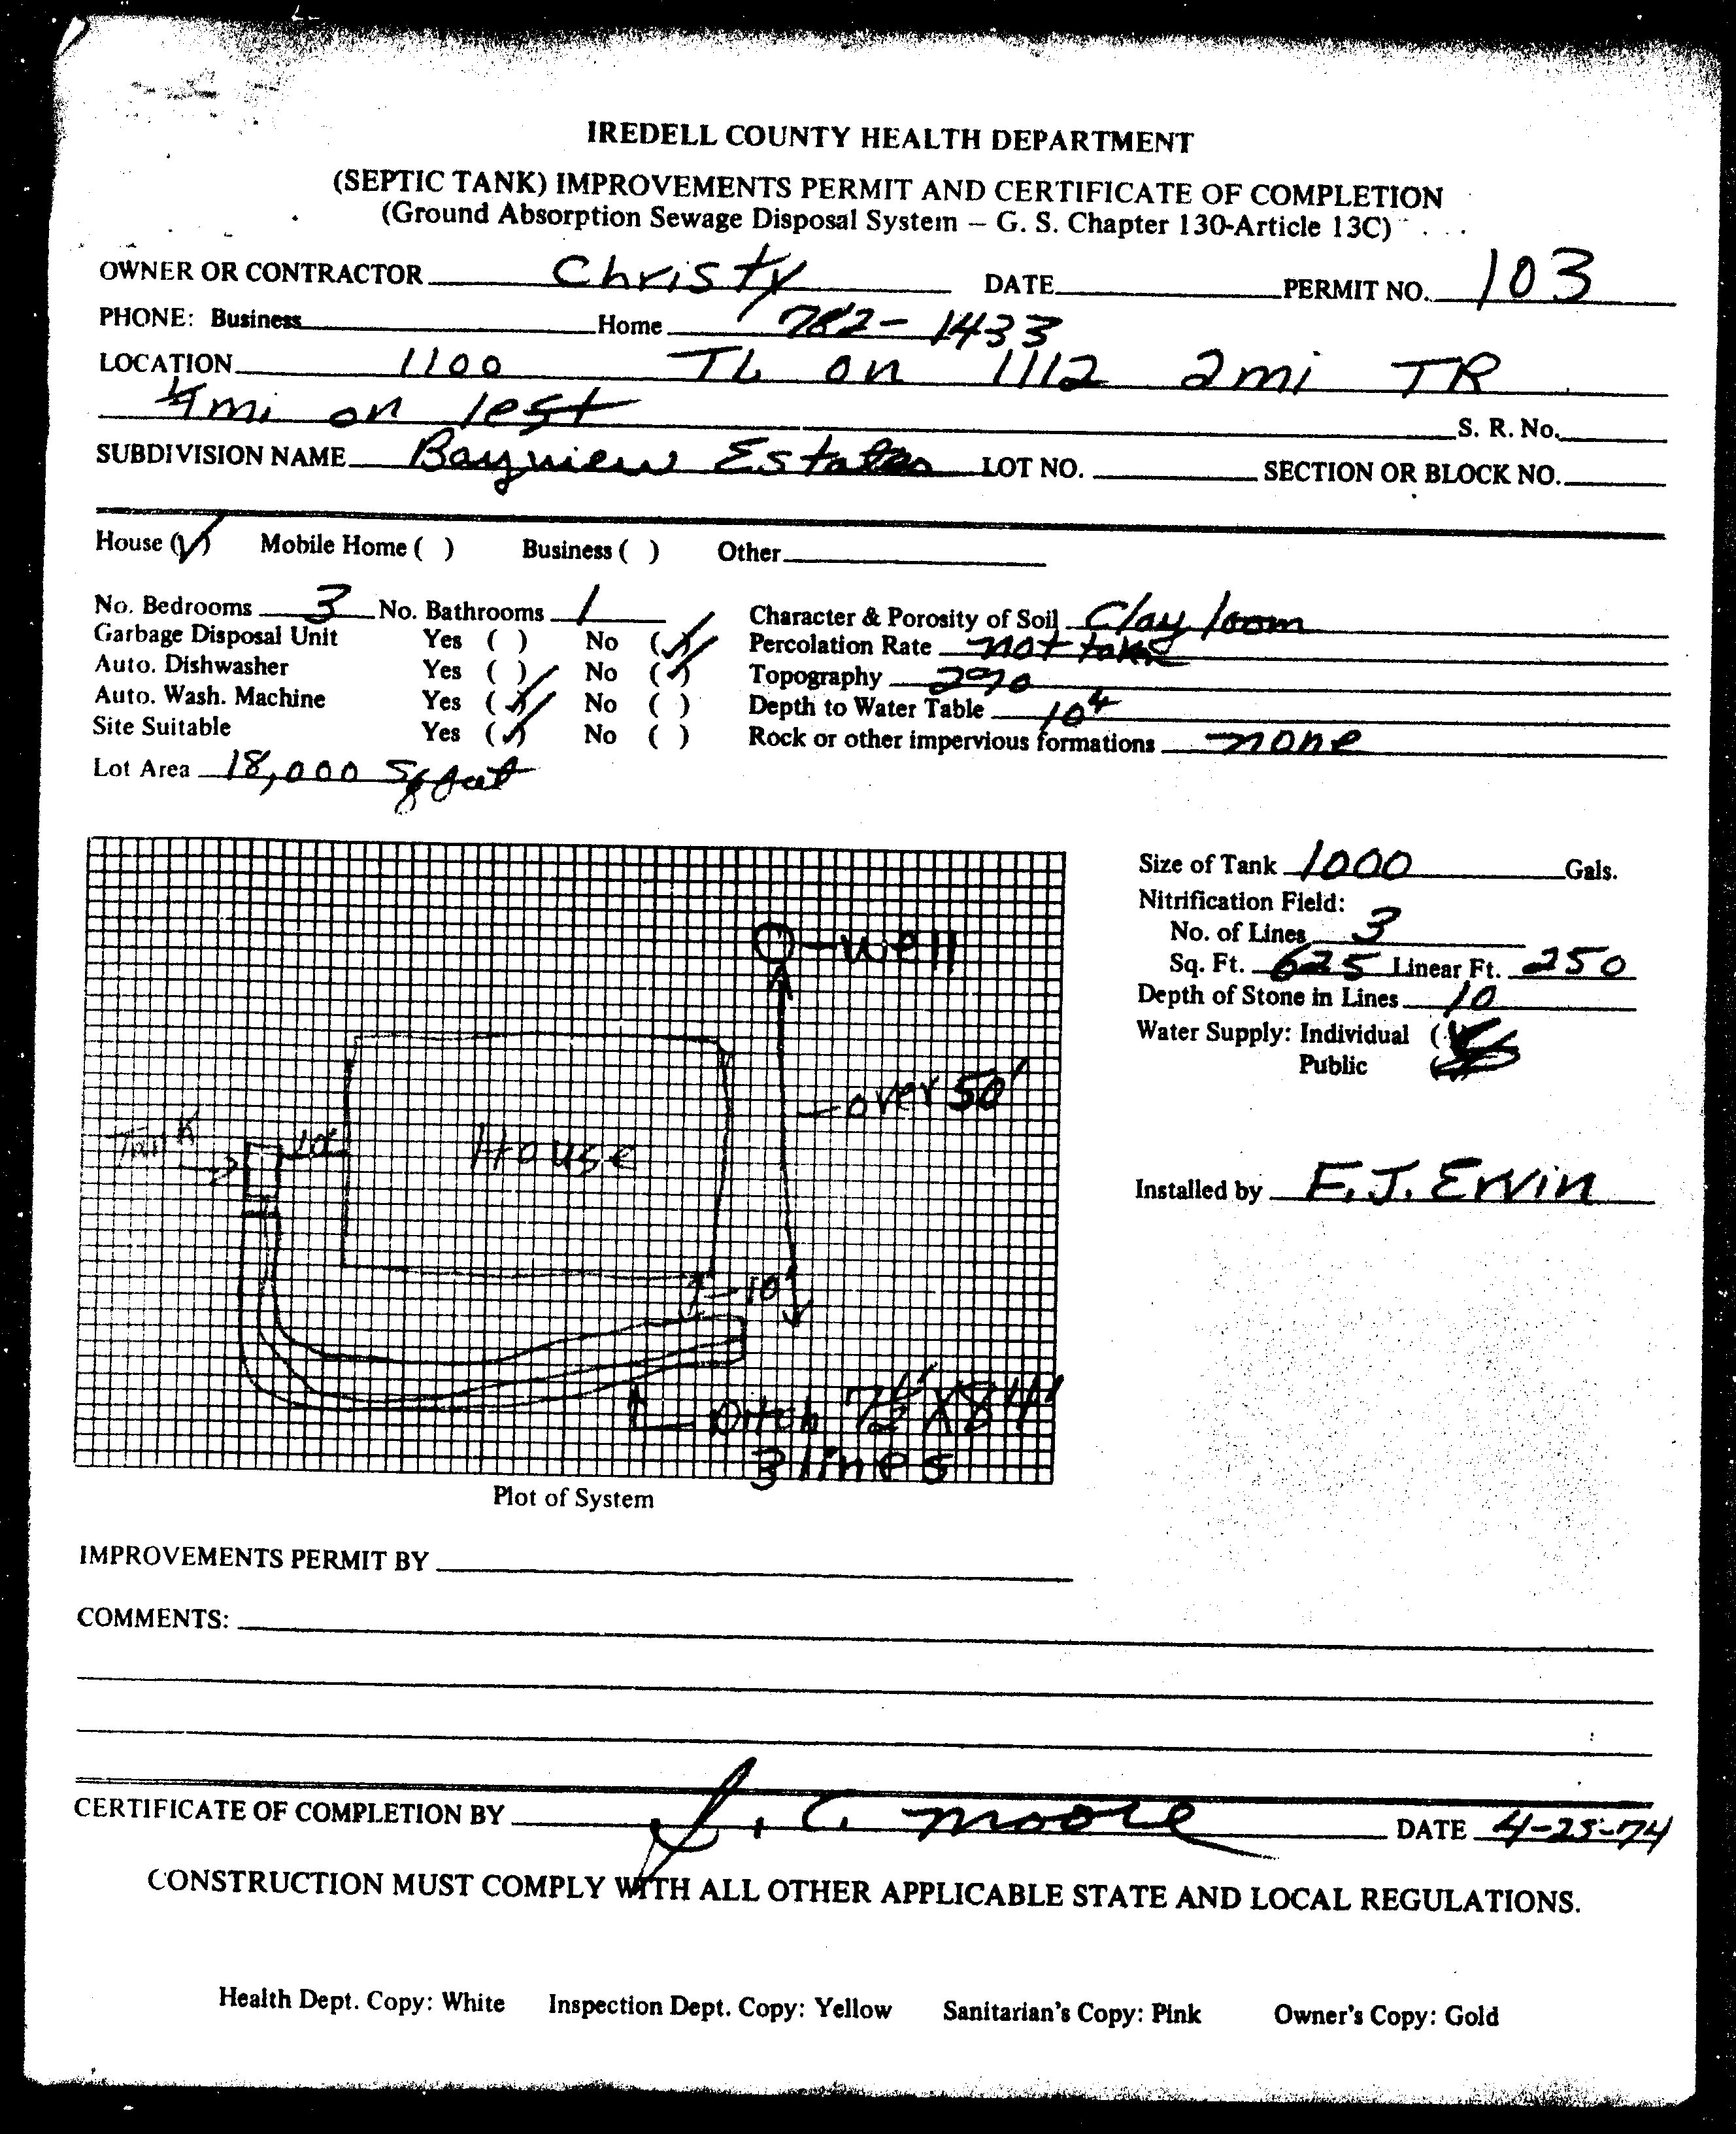 IREDELL COUNTY HEALTH DEPARTMENT
(SEPTIC TANK) IMPROVEMENTS PERMIT AND CERTIFICATE OF COMPLETION
(Ground Absorption Sewage Disposal System – G. S. Chapter 130-Article 13C)
OWNER OR CONTRACTOR Christy DATE PERMIT NO. 103
PHONE: Business Home 782-1433
LOCATION 1100 TL on 1112 2mi TR
¼ mi on lest S. R. No.
SUBDIVISION NAME Bayview Estates LOT NO. SECTION OR BLOCK NO.
House (✓) Mobile Home ( ) Business ( ) Other
No. Bedrooms 3 No. Bathrooms 1 Character & Porosity of Soil Clay loom
Garbage Disposal Unit Yes ( ) No (✓) Percolation Rate not take
Auto. Dishwasher Yes ( ) No (✓) Topography 2%
Auto. Wash. Machine Yes (✓) No ( ) Depth to Water Table 10
Site Suitable Yes (✓) No ( ) Rock or other impervious formations none
Lot Area 18,000 Sq
Size of Tank 1000 Gals.
Nitrification Field:
No. of Lines 3
Sq. Ft. 625 Linear Ft. 250
Depth of Stone in Lines 10
Water Supply: Individual (
Public
Installed by F.J. Ervin
well
over 50'
Tank
10'
House
10'
Ditch X 84'
3 lines
Plot of System
IMPROVEMENTS PERMIT BY
COMMENTS:
CERTIFICATE OF COMPLETION BY J. C. Moore DATE 4-25-74
CONSTRUCTION MUST COMPLY WITH ALL OTHER APPLICABLE STATE AND LOCAL REGULATIONS.
Health Dept. Copy: White Inspection Dept. Copy: Yellow Sanitarian's Copy: Pink Owner's Copy: Gold